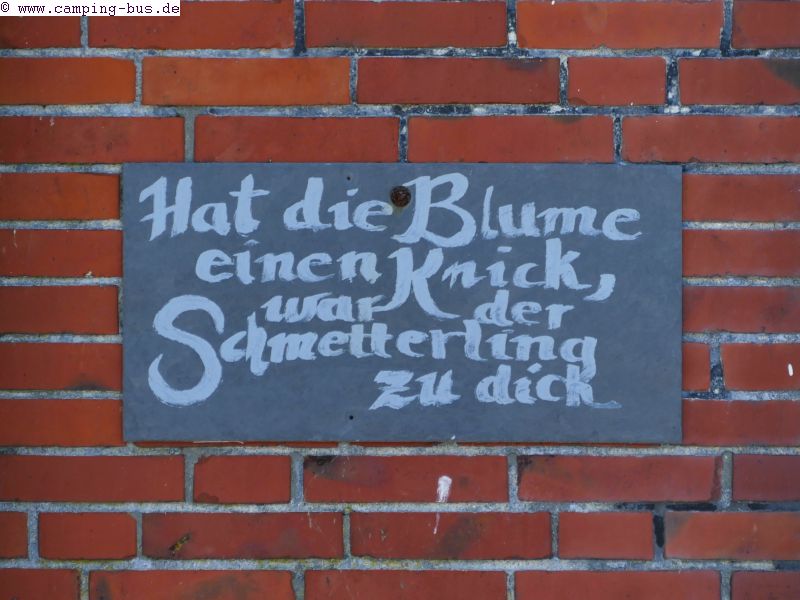 www.camping-bus.de
Hat die Blume
einen Knick,
war der
Schmetterling
zu dick